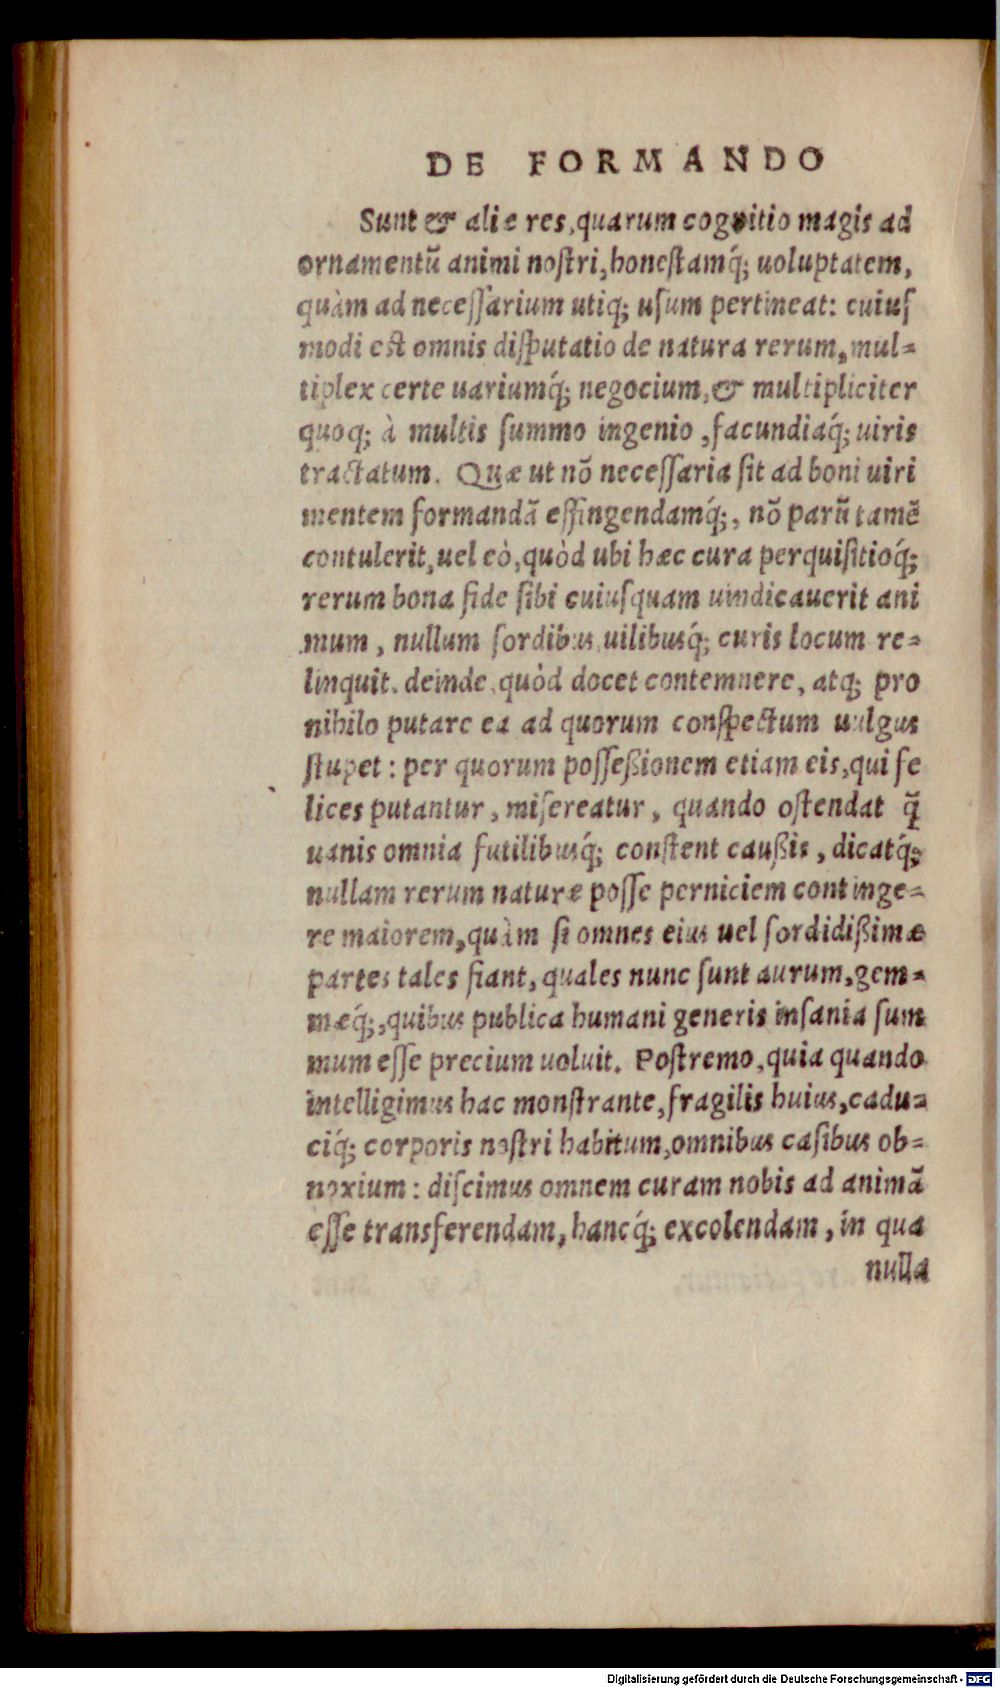 DE FORMANDO
Sunt & aliæ res, quarum cognitio magis ad
ornamentũ animi noſtri, honeſtamq́; uoluptatem,
quàm ad neceſſarium utiq; uſum pertineat: cuiuſ
modi eſt omnis diſputatio de natura rerum, mul=
tiplex certe uariumq́; negocium, & multipliciter
quoq; à multis ſummo ingenio, facundiaq́; uiris
tractatum. Quæ ut nõ neceſſaria ſit ad boni uiri
mentem formandã effingendamq́;, nõ parũ tamẽ
contulerit, uel eò, quòd ubi hæc cura perquiſitioq́;
rerum bona fide ſibi cuiuſquam uindicauerit ani
mum, nullum ſordibus, uilibusq́; curis locum re=
linquit. deinde, quòd docet contemnere, atq; pro
nihilo putare ea ad quorum conſpectum uulgus
ſtupet: per quorum poſſeßionem etiam eis, qui fe
lices putantur, miſereatur, quando oſtendat q̃
uanis omnia futilibusq́; conſtent caußis, dicatq́;
nullam rerum naturæ poſſe perniciem continge=
re maiorem, quàm ſi omnes eius uel ſordidißimæ
partes tales fiant, quales nunc ſunt aurum, gem=
mæq́;, quibus publica humani generis inſania ſum
mum eſſe precium uoluit. Poſtremo, quia quando
intelligimus hac monſtrante, fragilis huius, cadu=
ciq́; corporis noſtri habitum, omnibus caſibus ob=
noxium: diſcimus omnem curam nobis ad animã
eſſe transferendam, hancq́; excolendam, in qua
nulla
Digitalisierung gefördert durch die Deutsche Forschungsgemeinschaft - DFG